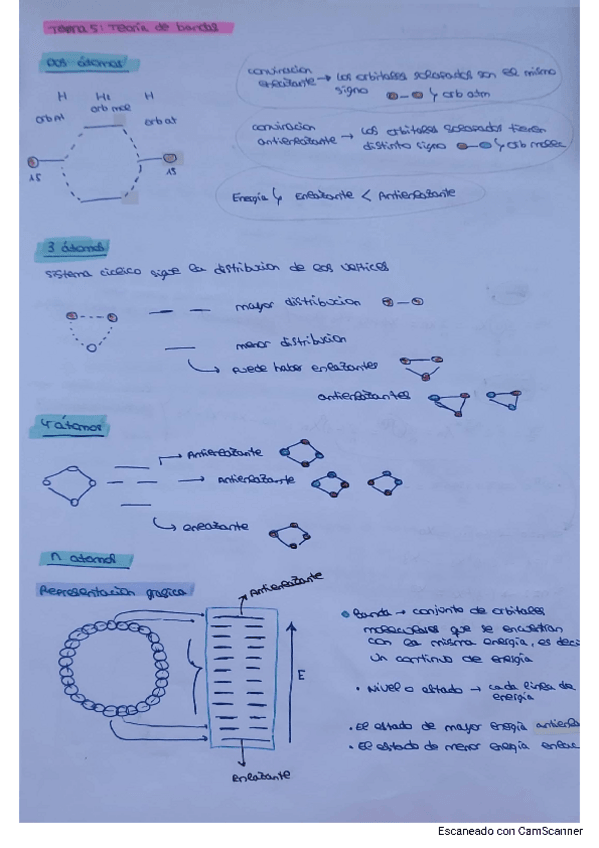 Tema 5: Teoría de bandas
Dos átomos
H H₂ H
orb mol
orb at orb at
1S 1S
convinacion enlazante → Los orbitales solapados son el mismo
signo orb atm
convinacion antienlazante → Los orbitales solapados tienen
distinto signo orb molec
Energía Enlazante < Antienlazante
3 átomos
sistema ciclico sigue la distribucion de los vertices
mayor distribucion
menor distribucion
puede haber enlazantes
antienlazantes
4 átomos
Antienlazante
Antienlazante
enlazante
n átomos
Representacion grafica
Antienlazante
E
enlazante
Banda → conjunto de orbitales
moleculares que se encuentran
con la misma energía, es deci
un continuo de energía
• Nivel o estado → cada línea de
energía
• El estado de mayor energía antienla
• El estado de menor energía enlac
Escaneado con CamScanner